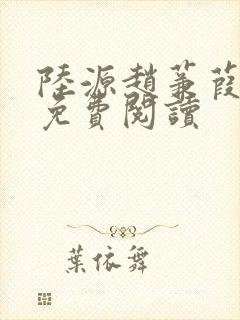 陸源趙蒹葭
免費閱讀
葉依舞